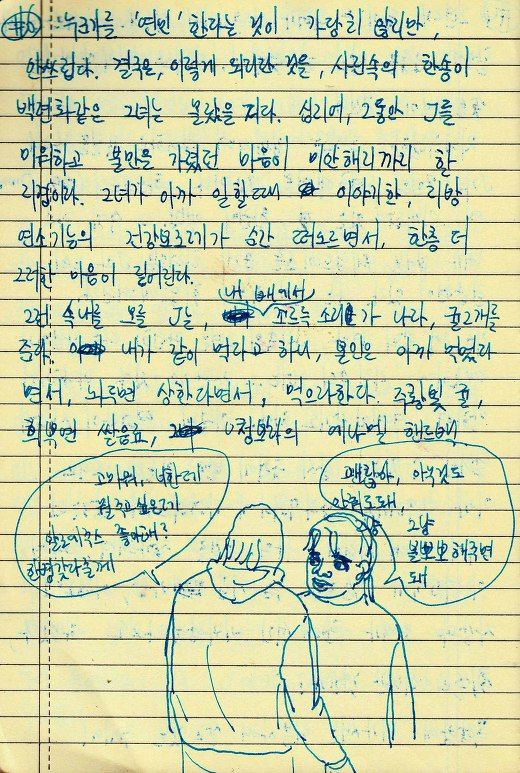 #6 누군가를 '연민' 한다는 것이 가당치 않지만,
안쓰럽다. 결국은, 이렇게 되리란 것을, 사진속의 한송이
백련화같은 그녀는 몰랐을 거다. 심지어, 그동안 J를
미워하고 불만을 가졌던 마음이 미안해지기까지 한
지경이다. 그녀가 아까 일할때 이야기한, 지방
연소기능의 건강보조제가 순간 떠오르면서, 한층 더
그러한 마음이 깊어진다.
내 배에서
그런 속내를 모를 J는, 쪼르륵 소리가 나자, 귤2개를
준다. 내가 같이 먹자고 하니, 본인은 아까 먹었다
면서, 놔두면 상한다면서, 먹으라한다. 주황빛 귤,
희뿌연 쌀음료, 청보라의 에나멜 핸드백
고마워, 너한테
뭘 주고싶은데
알로에주스 좋아해?
한병갖다줄게
괜찮아, 아무것도
안줘도돼,
그냥
뽀뽀해주면
돼